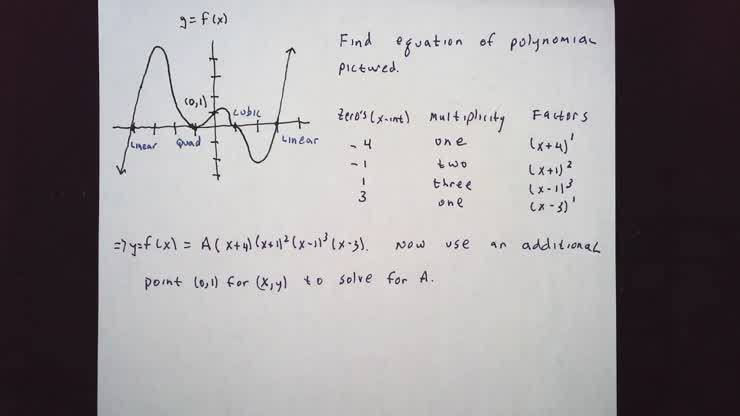 y = f(x)
Find equation of polynomial
pictured.
(0,1)
cubic
Linear
Quad
Linear
Zero's (x-int) Multiplicity Factors
-4 one (x+4)¹
-1 two (x+1)²
1 three (x-1)³
3 one (x-3)¹
⇒ y=f(x) = A(x+4)(x+1)²(x-1)³(x-3). Now use an additional
point (0,1) for (x,y) to solve for A.